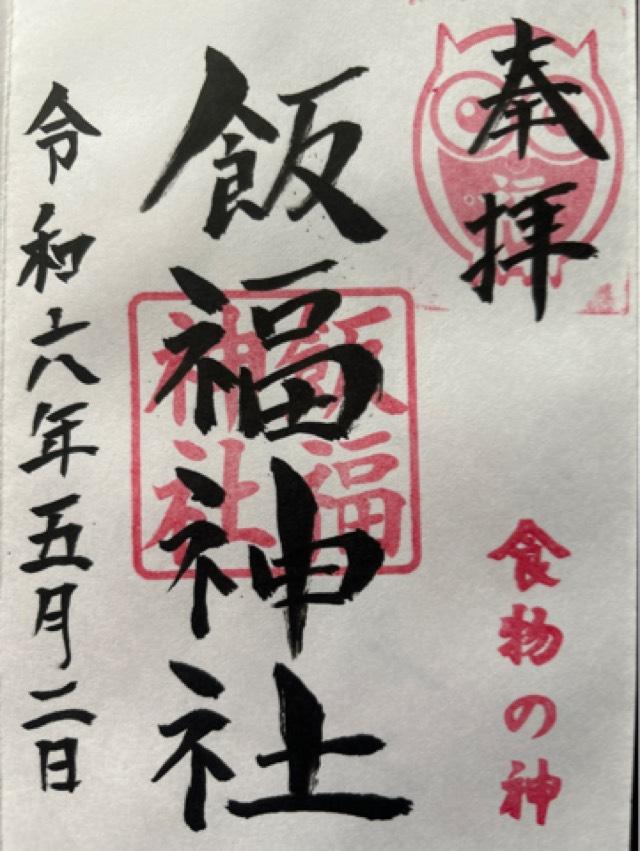 奉拝
食物の神
飯福神社
飯福
神社
令和六年五月二日